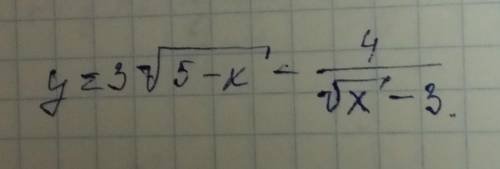 y = 3√(5-x) - 4/(√x - 3).